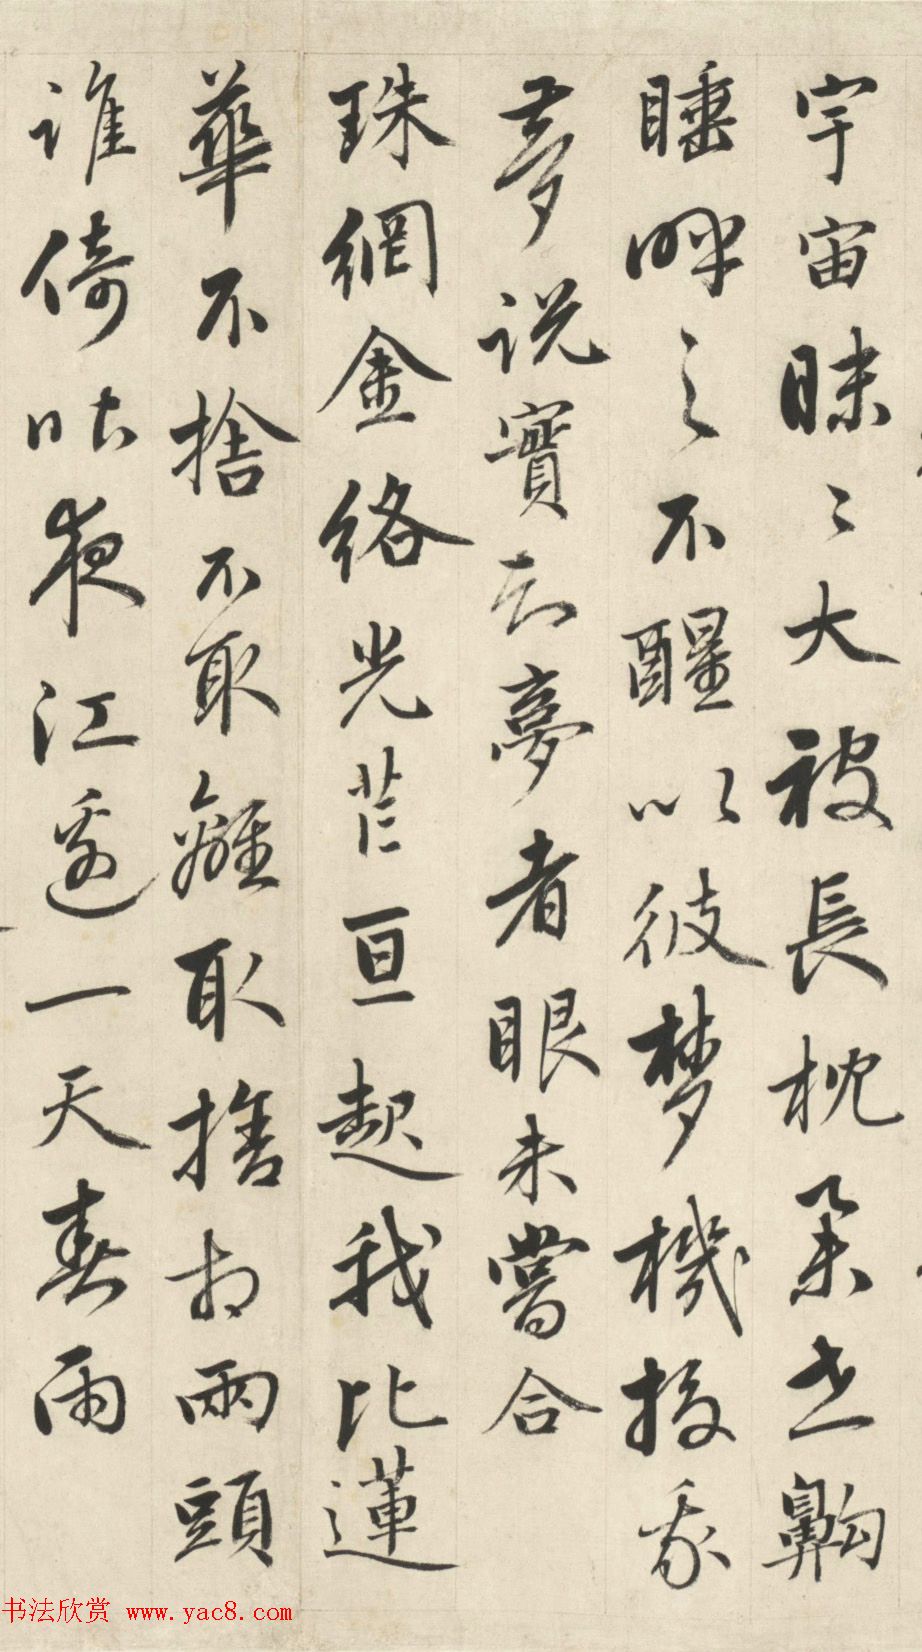 宇宙昧〻大被長枕舉世齁
睡呼之不醒以彼夢機投我
夢說實無夢者眼未嘗合
珠網金絡光芒亘起我比蓮
華不捨不取離取捨相兩頭
誰倚咄夜江邊一天春雨
书法欣赏 www.yac8.com